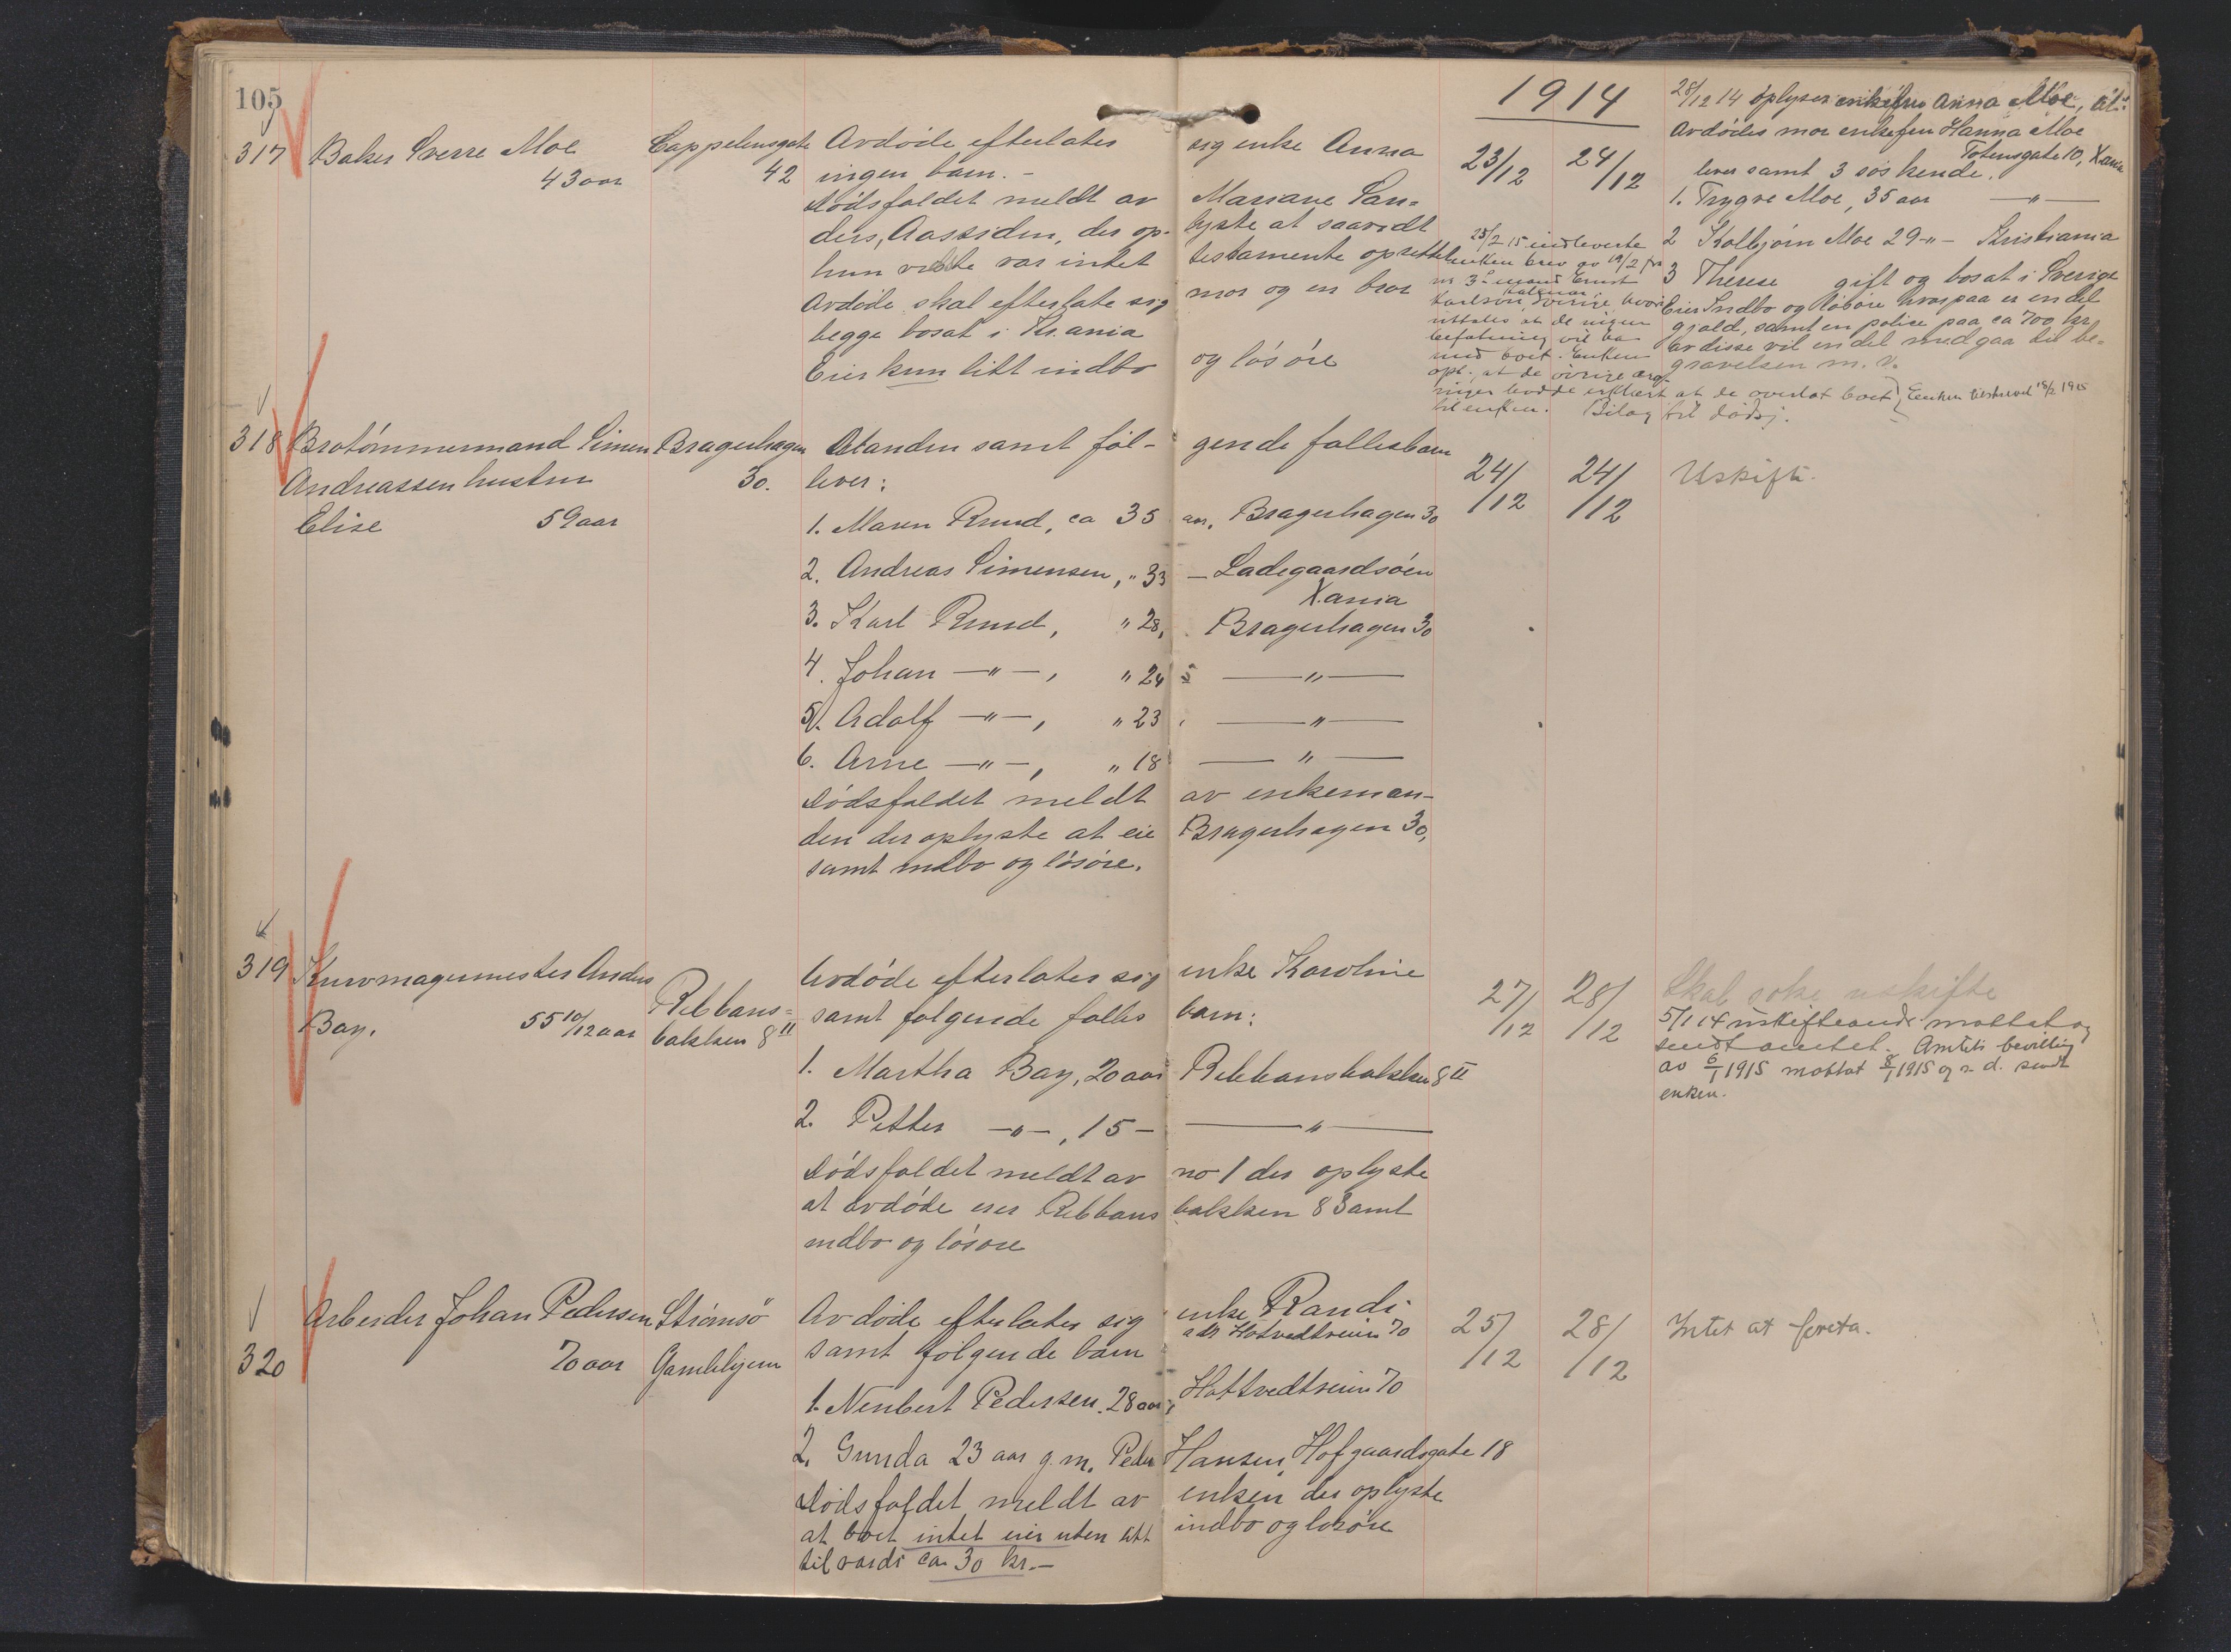 105
1914
317 Baker Sverre Moe
43 aar
Cappelensgate
42
Avdøde efterlater sig enke Anna
ingen barn. -
Dødsfaldet meldt av Mariane San=
ders, Aassiden, der op- lyste at saavidt
hun visste var intet testamente oprettet
Avdøde skal efterlate sig mor og en bror
begge bosat i Kr.ania
Eier kun litt indbo og løsøre
23/12 24/12
25/2 15 indleverte
enken brev av 19/2 fra
nr 3's mand Ernst
Karlson Kalmar Sverige hvori
uttales at de ingen
befatning vil ha
med boet. Enken
opl. at de øvrige arv-
inger hadde erklært at de overlot boet
til enken. Bilag til dødsj.
28/12 14 oplyser enkefru Anna Moe, at:
Avdødes mor enkefru Hanna Moe
Totensgate 10, Xania
lever samt 3 søskende.
1. Trygve Moe, 35 aar —"—
2 Kolbjørn Moe 29 -"- Kristiania
3 Therese gift og bosat i Sverige
Eier Indbo og løsøre hvorpaa er en del
gjæld, samt en police paa ca 700 kr
av disse vil en del medgaa til be=
gravelsen m. v.
Enken 18/2 1915
318 Brotømmermand Simen
Andreassen hustru
Elise 59 aar
Bragerhagen
30.
Manden samt føl- gende fællesbarn
lever:
1. Maren Ruud, ca 35 aar, Bragerhagen 30
2. Andreas Simensen, " 33 - Ladegaardsøen
Xania
3. Karl Ruud, " 28, Bragerhagen 30
4. Johan —"—, " 24 —"—
5. Adolf —"—, " 23 —"—
6. Arne —"—, " 18 —"—
Dødsfaldet meldt av enkeman-
den der oplyste at eie Bragerhagen 30,
samt indbo og løsøre.
24/12 24/12
Uskifte.
319 Kurvmagermester Anders
Bay. 55 10/12 aar
Rebbans=
bakken 8 II
Avdøde efterlater sig enke Karoline
samt følgende fælles barn:
1. Martha Bay, 20 aar Rebbansbakken 8 II
2. Petter —"—, 15 - —"—
Dødsfaldet meldt av no 1 der oplyste
at avdøde eier Rebbans bakken 8 samt
indbo og løsøre
27/12 28/12
Skal søke uskifte
5/1 14 uskifteandr. mottat og
sendt amtet. Amtets bevilling
av 6/1 1915 mottat 8/1 1915 og s. d. sendt
enken.
320
Arbeider Johan Pedersen
70 aar
Strømsø
Gamlehjem
Avdøde efterlater sig enke Randi
adr Hotvedtveien 70
samt følgende barn
1. Nenbert Pedersen, 28 aar, Hottvedtveien 70
2. Gunda 23 aar g. m. Peder Hansen, Hofgaardsgate 18
Dødsfaldet meldt av enken der oplyste
at boet intet eier uten litt indbo og løsøre
til værdi ca 30 kr. -
25/12 28/12
Intet at foreta.